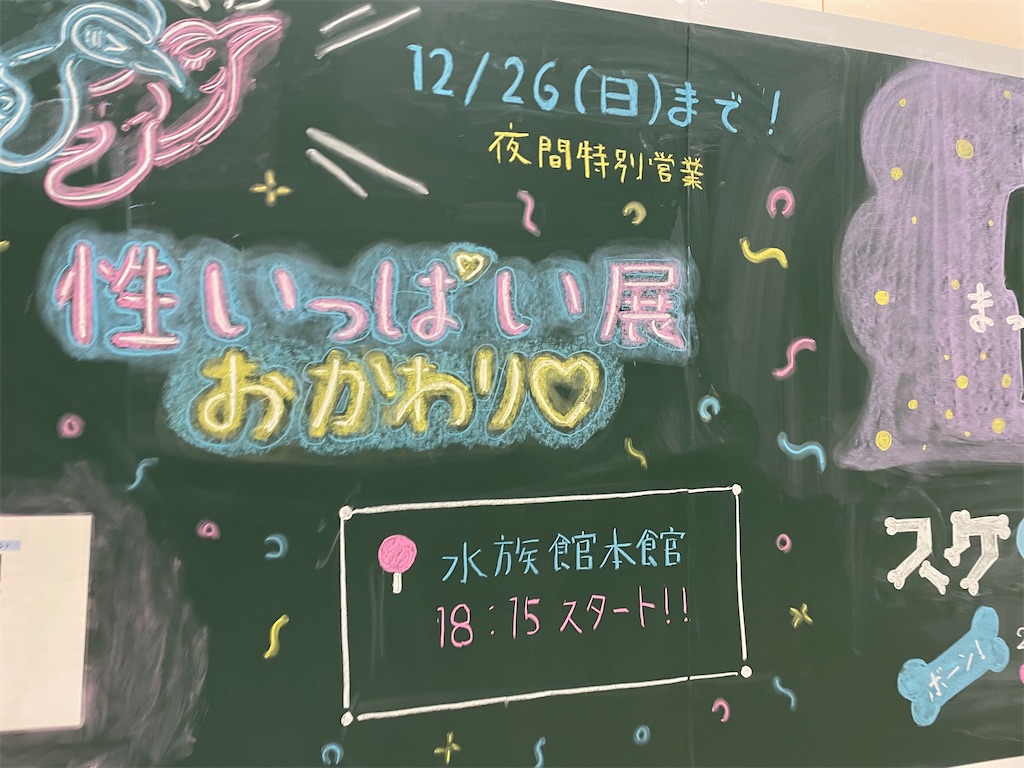 12/26(日)まで!
夜間特別営業
性いっぱい展
おかわり♡
水族館本館
18:15 スタート!!
まっ
スケ
ボーン!